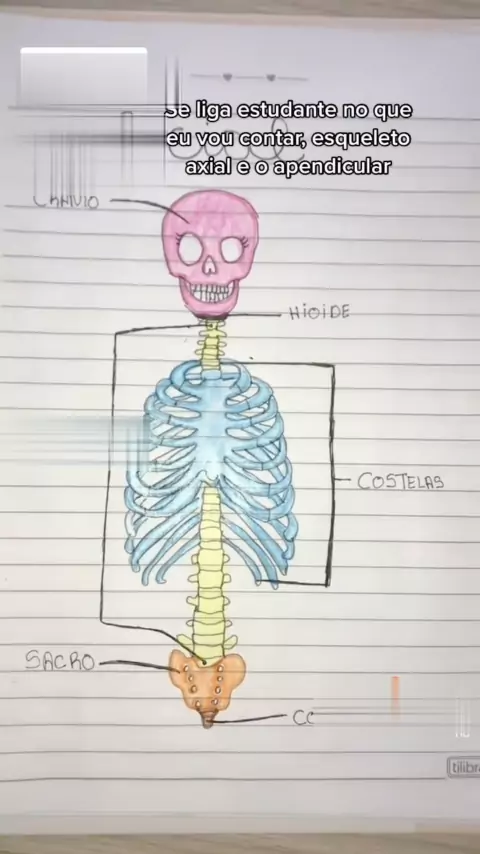 Se liga estudante no que
eu vou contar, esqueleto
axial e o apendicular
HIOIDE
COSTELAS
SACRO